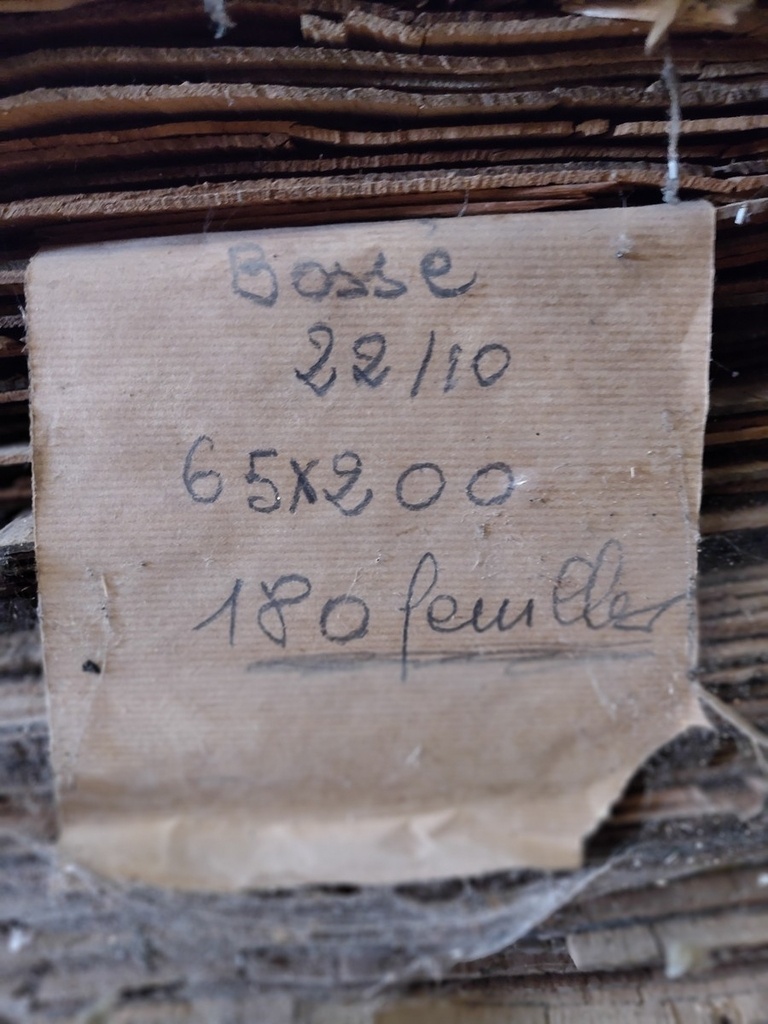 Bosse
22/10
65x200
180 feuilles